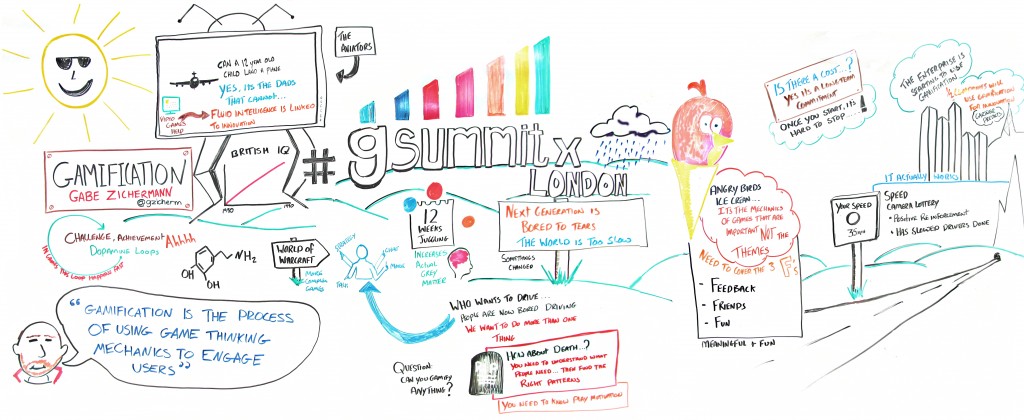 THE
AVIATORS
CAN A 12 YEAR OLD
CHILD LAND A PLANE
YES, ITS THE DADS
THAT CANNOT...
VIDEO
GAMES
HELP
FLUID INTELLIGENCE IS LINKED
TO INNOVATION
GAMIFICATION
GABE ZICHERMANN
@gzicherm
BRITISH IQ
1990
#gsummitx
LONDON
CHALLENGE, ACHIEVEMENT Ahhhh
DOPAMINE LOOPS
IN GAMES THIS LOOP HAPPENS FAST
NH2
OH
OH
WORLD OF
WARCRAFT
MORE
COMPLEX
GAMES
STRATEGY
CHAT
MOVE
TALK
12
WEEKS
JUGGLING
INCREASES
ACTUAL
GREY
MATTER
NEXT GENERATION IS
BORED TO TEARS
THE WORLD IS TOO SLOW
SOMETHINGS
CHANGED
"GAMIFICATION IS THE PROCESS
OF USING GAME THINKING
MECHANICS TO ENGAGE
USERS"
WHO WANTS TO DRIVE...
PEOPLE ARE NOW BORED DRIVING
WE WANT TO DO MORE THAN ONE
THING
QUESTION:
CAN YOU GAMIFY
ANYTHING?
HOW ABOUT DEATH...?
YOU NEED TO UNDERSTAND WHAT
PEOPLE NEED... THEN FIND THE
RIGHT PATTERNS
YOU NEED TO KNOW PLAY MOTIVATION
ANGRY BIRDS
ICE CREAM...
ITS THE MECHANICS
OF GAMES THAT ARE
IMPORTANT NOT THE
THEMES
NEED TO COVER THE 3 F's
- FEEDBACK
- FRIENDS
- FUN
MEANINGFUL + FUN
IS THERE A COST...?
YES ITS A LONG TERM
COMMITMENT
ONCE YOU START, ITS
HARD TO STOP....!
THE ENTERPRISE IS
STARTING TO USE
GAMIFICATION
COMPANIES WILL
USE GAMIFICATION
FOR INNOVATION
IT ACTUALLY WORKS
YOUR SPEED
0
35mph
SPEED
CAMERA LOTTERY
• POSITIVE REINFORCEMENT
• HAS SLOWED DRIVERS DOWN